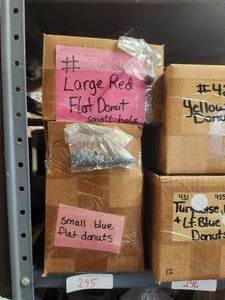 Large Red
Flat Donut
small hole
small blue
flat donuts
295
#4
Yellow
Donu
431 435
Turquoise,
+ Lt. Blue
Donuts
12
296